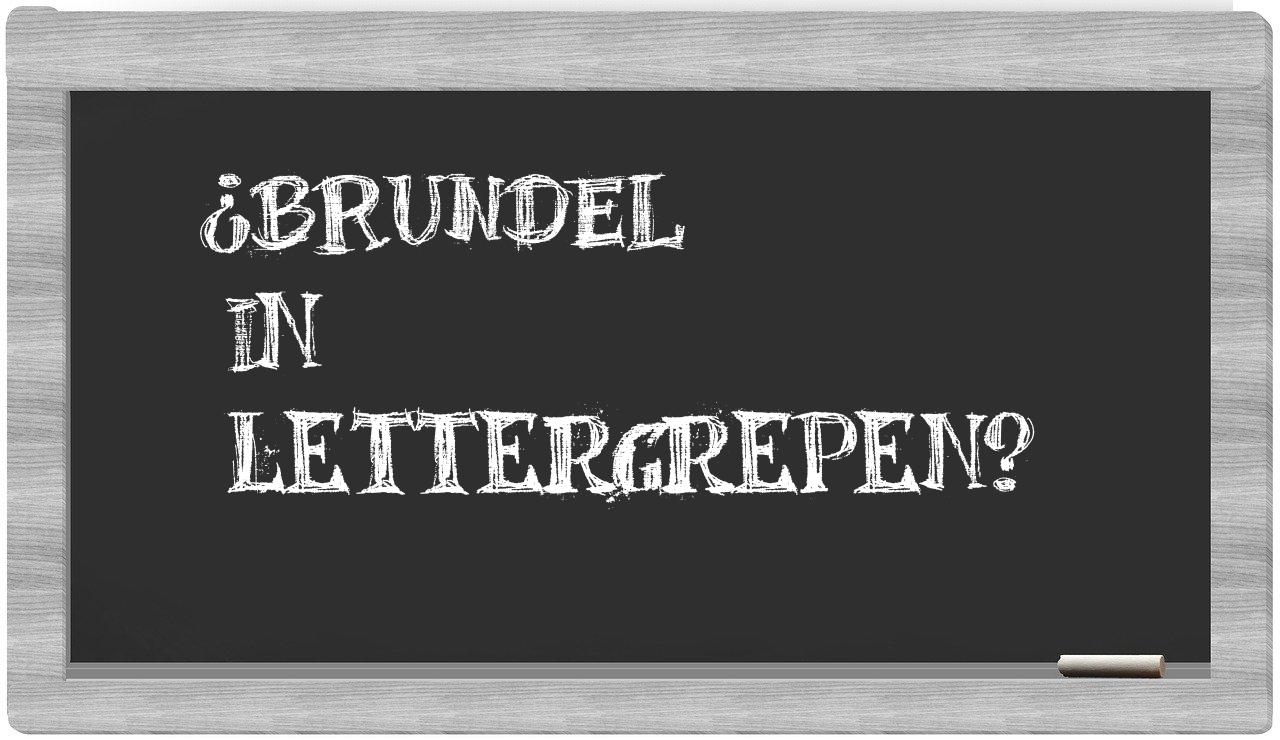 ¿BRUNDEL
IN
LETTERGREPEN?